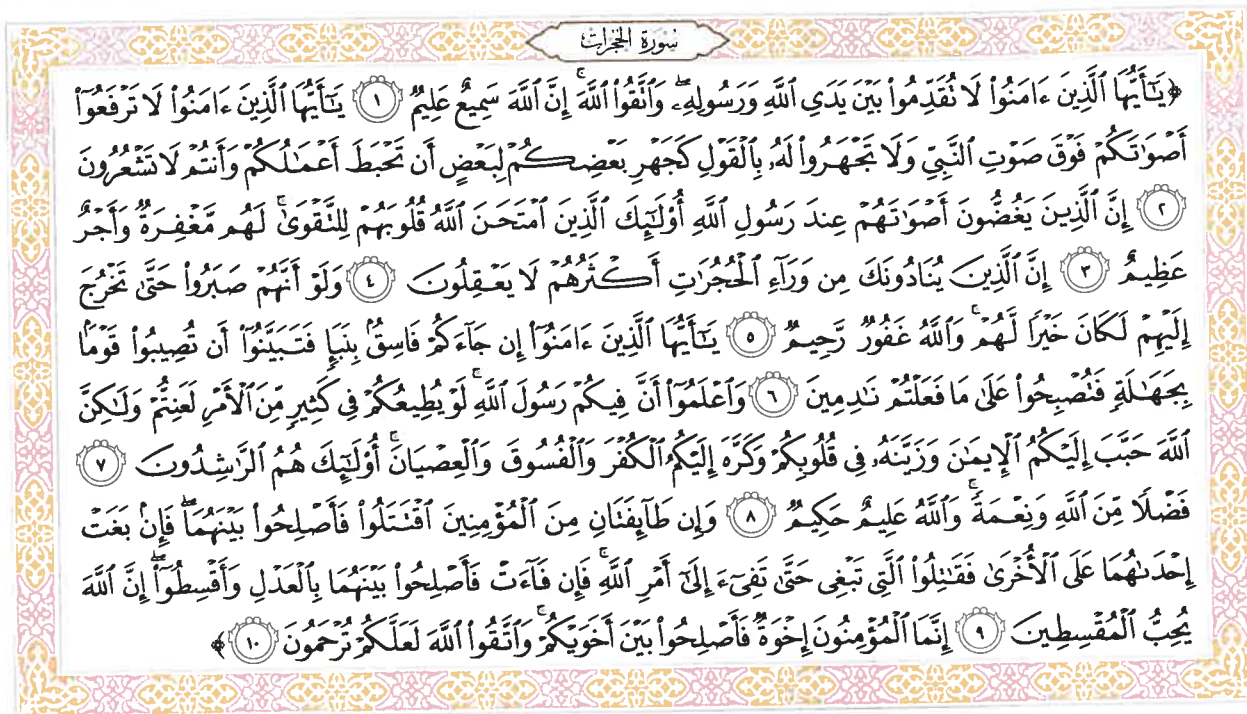 سُورَةُ الحُجُرَاتِ
﴿يَـٰٓأَيُّهَا ٱلَّذِينَ ءَامَنُواْ لَا تُقَدِّمُواْ بَيۡنَ يَدَيِ ٱللَّهِ وَرَسُولِهِۦۖ وَٱتَّقُواْ ٱللَّهَۚ إِنَّ ٱللَّهَ سَمِيعٌ عَلِيمٌ ١ يَـٰٓأَيُّهَا ٱلَّذِينَ ءَامَنُواْ لَا تَرۡفَعُوٓاْ
أَصۡوَٰتَكُمۡ فَوۡقَ صَوۡتِ ٱلنَّبِيِّ وَلَا تَجۡهَرُواْ لَهُۥ بِٱلۡقَوۡلِ كَجَهۡرِ بَعۡضِكُمۡ لِبَعۡضٍ أَن تَحۡبَطَ أَعۡمَٰلُكُمۡ وَأَنتُمۡ لَا تَشۡعُرُونَ
٢ إِنَّ ٱلَّذِينَ يَغُضُّونَ أَصۡوَٰتَهُمۡ عِندَ رَسُولِ ٱللَّهِ أُوْلَـٰٓئِكَ ٱلَّذِينَ ٱمۡتَحَنَ ٱللَّهُ قُلُوبَهُمۡ لِلتَّقۡوَىٰۚ لَهُم مَّغۡفِرَةٌ وَأَجۡرٌ
عَظِيمٌ ٣ إِنَّ ٱلَّذِينَ يُنَادُونَكَ مِن وَرَآءِ ٱلۡحُجُرَٰتِ أَكۡثَرُهُمۡ لَا يَعۡقِلُونَ ٤ وَلَوۡ أَنَّهُمۡ صَبَرُواْ حَتَّىٰ تَخۡرُجَ
إِلَيۡهِمۡ لَكَانَ خَيۡرًا لَّهُمۡۚ وَٱللَّهُ غَفُورٌ رَّحِيمٌ ٥ يَـٰٓأَيُّهَا ٱلَّذِينَ ءَامَنُوٓاْ إِن جَآءَكُمۡ فَاسِقُۢ بِنَبَإٍ فَتَبَيَّنُوٓاْ أَن تُصِيبُواْ قَوۡمَۢا
بِجَهَٰلَةٍ فَتُصۡبِحُواْ عَلَىٰ مَا فَعَلۡتُمۡ نَٰدِمِينَ ٦ وَٱعۡلَمُوٓاْ أَنَّ فِيكُمۡ رَسُولَ ٱللَّهِۚ لَوۡ يُطِيعُكُمۡ فِي كَثِيرٍ مِّنَ ٱلۡأَمۡرِ لَعَنِتُّمۡ وَلَٰكِنَّ
ٱللَّهَ حَبَّبَ إِلَيۡكُمُ ٱلۡإِيمَٰنَ وَزَيَّنَهُۥ فِي قُلُوبِكُمۡ وَكَرَّهَ إِلَيۡكُمُ ٱلۡكُفۡرَ وَٱلۡفُسُوقَ وَٱلۡعِصۡيَانَۚ أُوْلَـٰٓئِكَ هُمُ ٱلرَّٰشِدُونَ ٧
فَضۡلًا مِّنَ ٱللَّهِ وَنِعۡمَةًۚ وَٱللَّهُ عَلِيمٌ حَكِيمٌ ٨ وَإِن طَآئِفَتَانِ مِنَ ٱلۡمُؤۡمِنِينَ ٱقۡتَتَلُواْ فَأَصۡلِحُواْ بَيۡنَهُمَاۖ فَإِنۢ بَغَتۡ
إِحۡدَىٰهُمَا عَلَى ٱلۡأُخۡرَىٰ فَقَٰتِلُواْ ٱلَّتِي تَبۡغِي حَتَّىٰ تَفِيٓءَ إِلَىٰٓ أَمۡرِ ٱللَّهِۚ فَإِن فَآءَتۡ فَأَصۡلِحُواْ بَيۡنَهُمَا بِٱلۡعَدۡلِ وَأَقۡسِطُوٓاْۖ إِنَّ ٱللَّهَ
يُحِبُّ ٱلۡمُقۡسِطِينَ ٩ إِنَّمَا ٱلۡمُؤۡمِنُونَ إِخۡوَةٌ فَأَصۡلِحُواْ بَيۡنَ أَخَوَيۡكُمۡۚ وَٱتَّقُواْ ٱللَّهَ لَعَلَّكُمۡ تُرۡحَمُونَ ١٠﴾